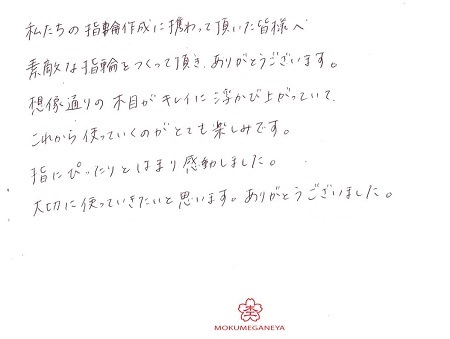 私たちの指輪作成に携わって頂いた皆様へ
素敵な指輪をつくって頂き、ありがとうございます。
想像通りの木目がキレイに浮かび上がっていて、
これから使っていくのがとても楽しみです。
指にぴったりとはまり感動しました。
大切に使っていきたいと思います。ありがとうございました。
MOKUMEGANEYA